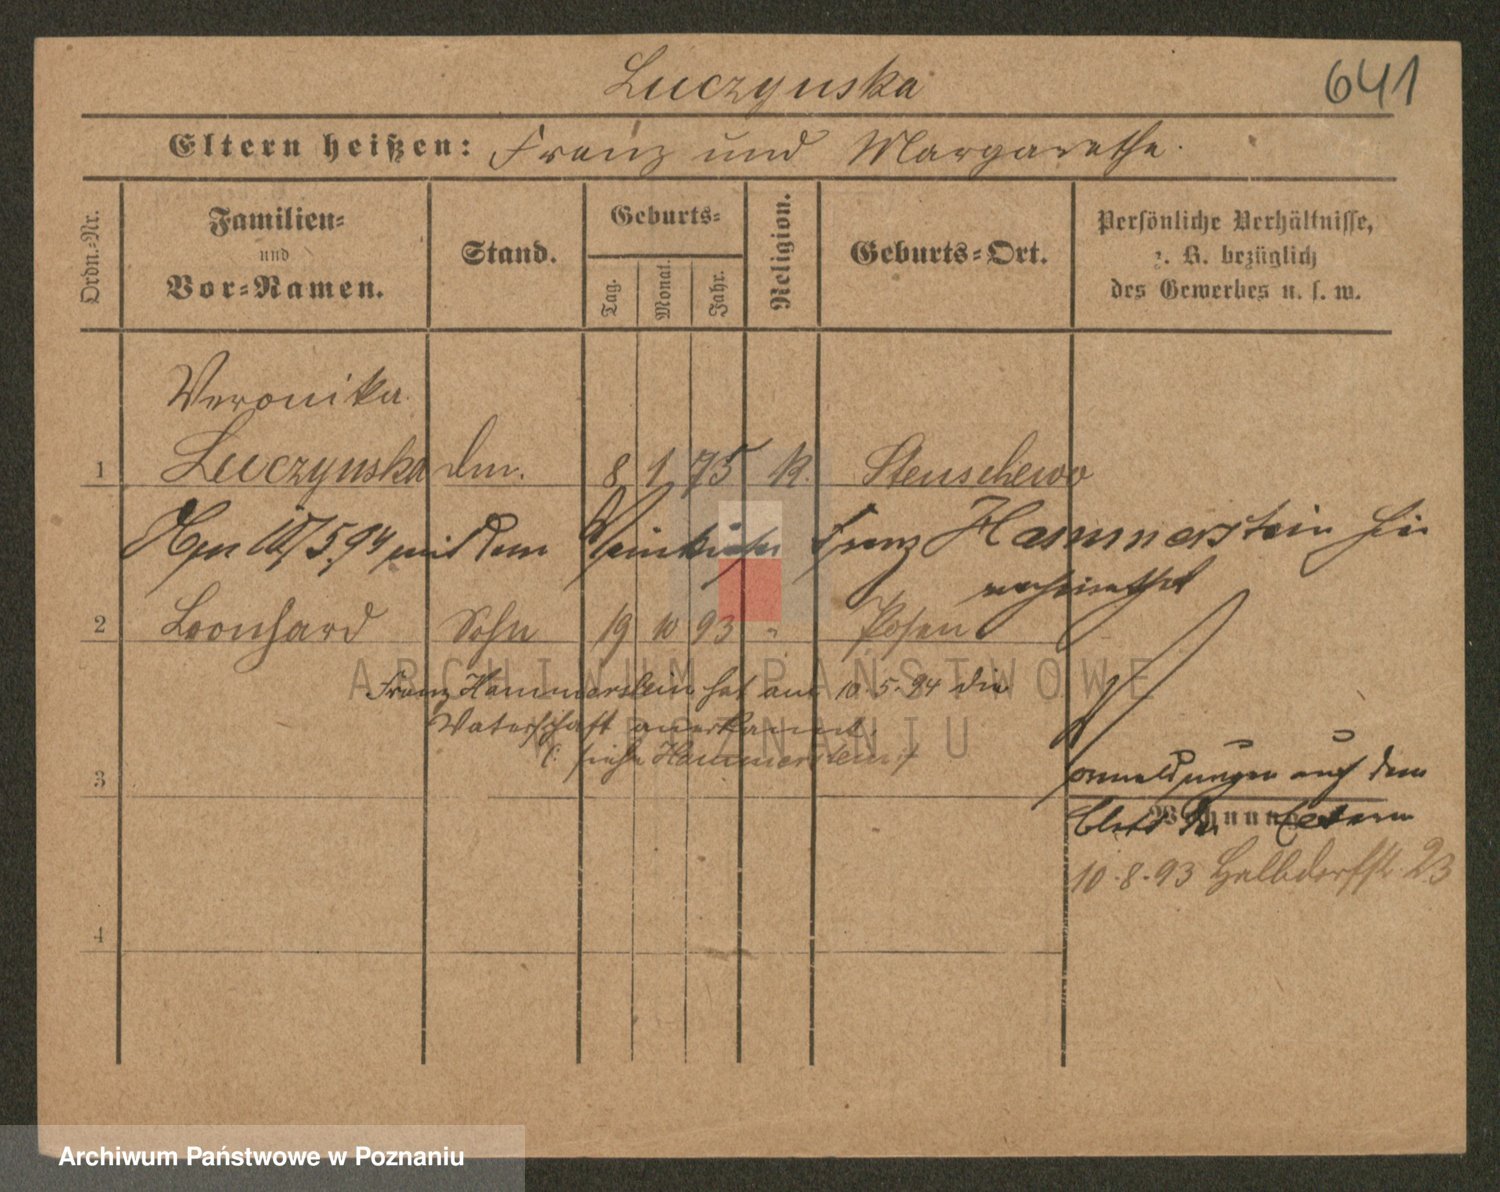 Luczynska 641
Eltern heißen: Franz und Margarethe.
Ordn.-Nr.
Familien-
und
Vor-Namen.
Stand.
Geburts-
Tag.
Monat.
Jahr.
Religion.
Geburts-Ort.
Persönliche Verhältnisse,
z. B. bezüglich
des Gewerbes u. s. w.
Veronika
1 Luczynska 8 1 75 K. Stenschewo
5.94 mit dem Franz Hammerstein hier
verheirathet
2 Leonhard Sohn 19 10 93 " Posen
Franz Hammerstein hat am 10.5.94 die
Vaterschaft anerkannt.
(: siehe Hammerstein :)
3
auf dem
Wohnung
10.8.93 Halbdorfstr. 23
4
ARCHIWUM PAŃSTWOWE
W POZNANIU
Archiwum Państwowe w Poznaniu